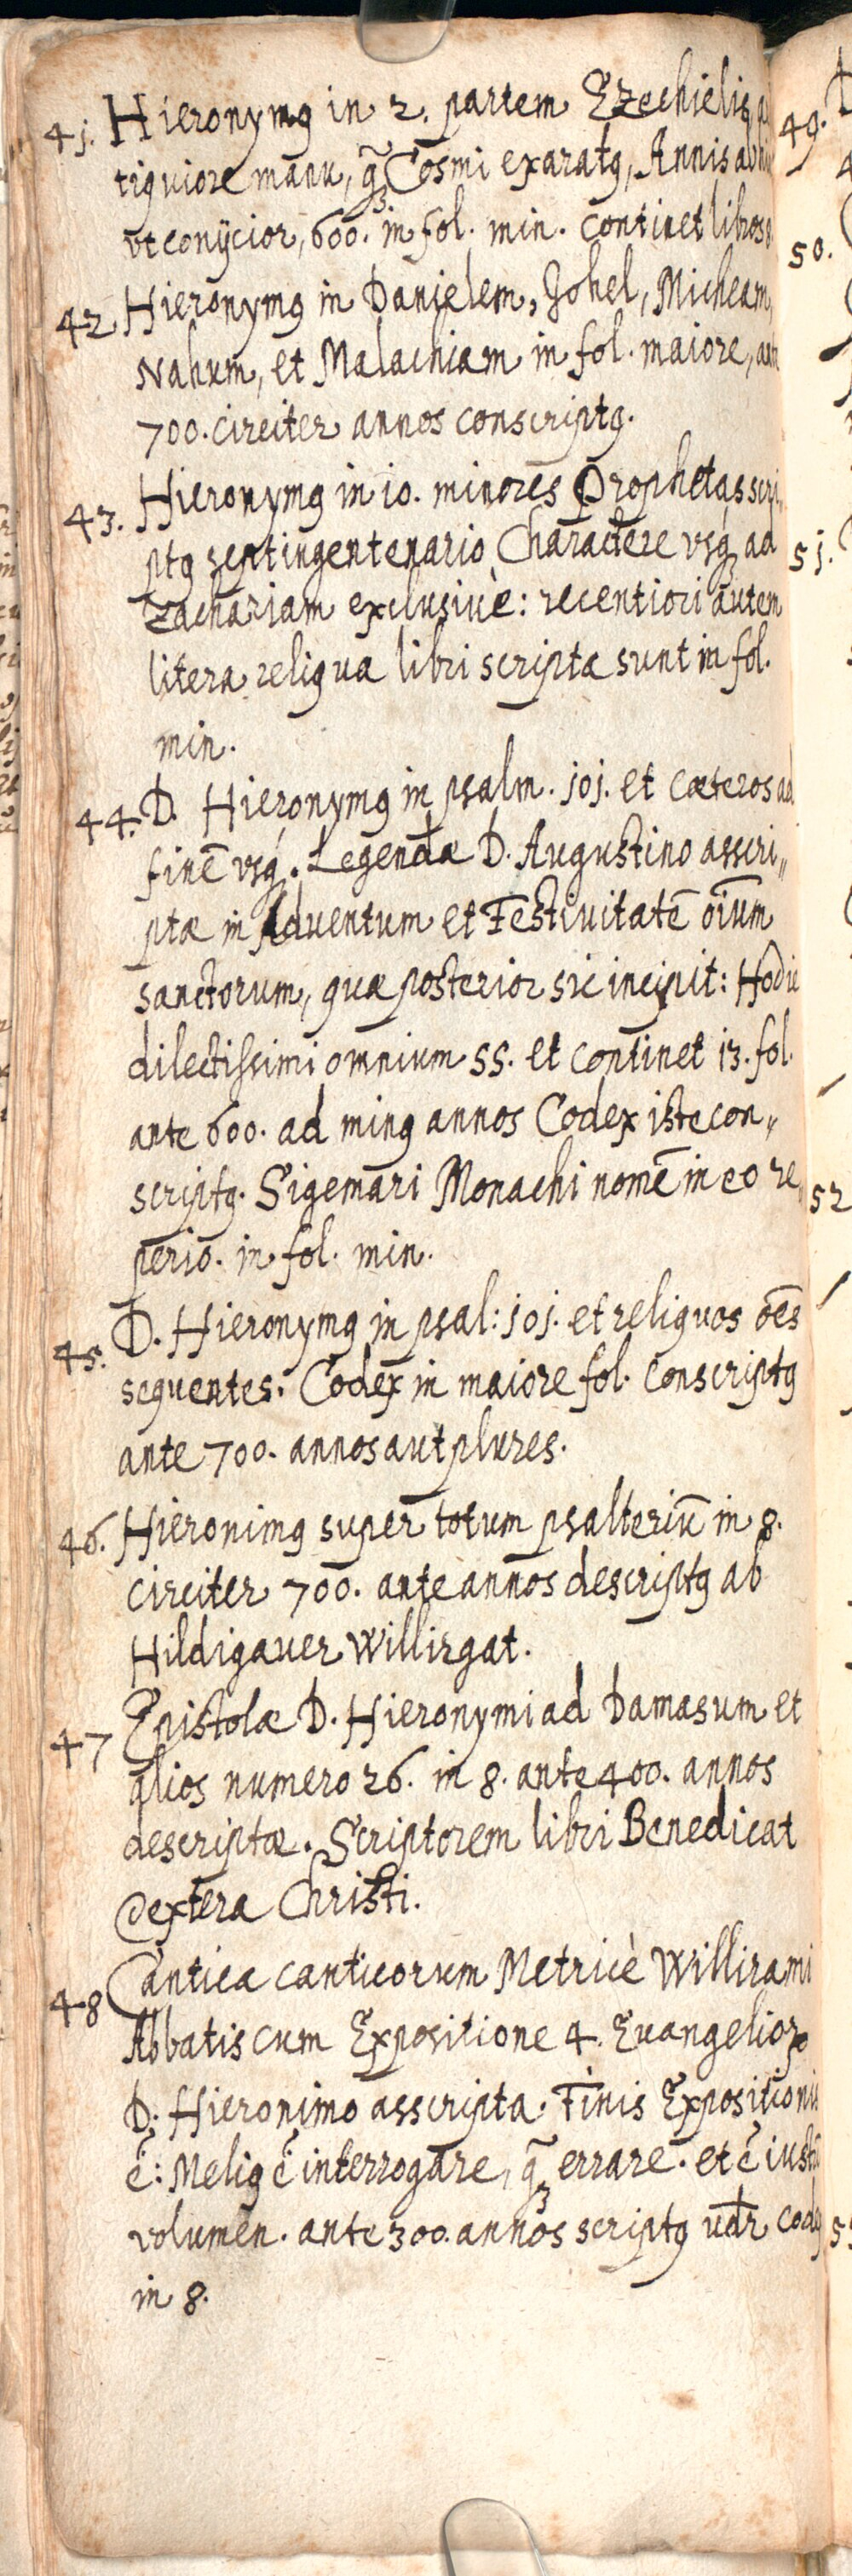 41. Hieronymꝰ in 2. partem Ezechielis
tiquiore manu, q̃ Cosmi exaratꝰ, Annis
vt conijcior, 600. in fol. min. continet libros
42. Hieronymꝰ in Danielem, Johel, Micheam,
Nahum, et Malachiam in fol. maiore,
700. circiter annos conscriptꝰ.
43. Hieronymꝰ in 10. minores Prophetas scri
ptꝰ septingentenario Charactere vsq́ ad
Zachariam exclusiuè: recentiori autem
litera reliqua libri scripta sunt in fol.
min.
44. D. Hieronymꝰ in psalm. 101. et cæteros ad
finẽ vsq́. Legendæ D. Augustino asscri„
ptæ in Aduentum et Festiuitatẽ oĩum
sanctorum, quæ posterior sic incipit: Hodie
dilectissimi omnium SS. et continet 13. fol.
ante 600. ad minꝰ annos Codex iste con„
scriptꝰ. Sigemari Monachi nomẽ in eo re„
perio. in fol. min.
45. D. Hieronymꝰ in psal: 101. et reliquos oẽs
sequentes. Codex in maiore fol. conscriptꝰ
ante 700. annos aut plures.
46. Hieronimꝰ super totum psalteriũ in 8.
circiter 700. ante annos descriptꝰ ab
Hildigauer Willirgat.
47 Epistolæ D. Hieronymi ad Damasum et
alios numero 26. in 8. ante 400. annos
descriptæ. Scriptorem libri Benedicat
dextera Christi.
48 Cantica canticorum Metricè Willirami
Abbatis cum Expositione 4. Euangelioꝝ
D. Hieronimo asscripta. Finis Expositionis
ẽ: Meliꝰ ẽ interrogare, q̃ errare. et ẽ
volumen. ante 300. annos scriptꝰ vdr̃
in 8.
49.
50.
51.
52